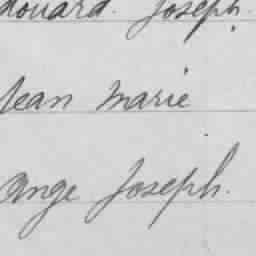 douard. Joseph.
Jean Marie
Ange Joseph.